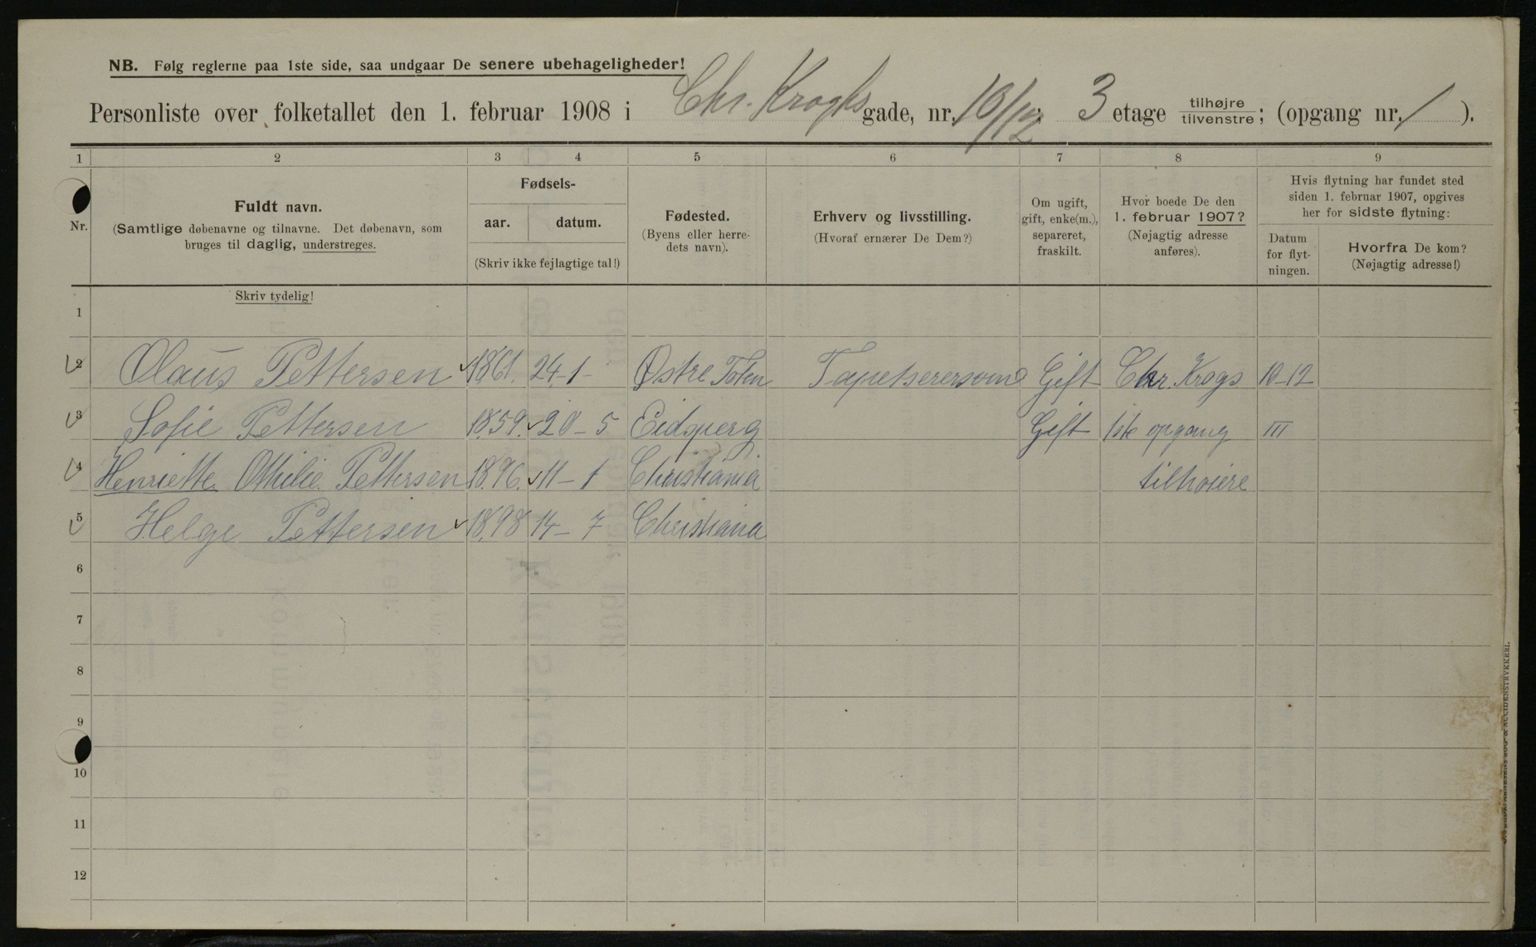 NB. Følg reglerne paa 1ste side, saa undgaar De senere ubehageligheder!
Personliste over folketallet den 1. februar 1908 i Chr. Kroghs gade, nr. 10/12 3 etage tilhøjre tilvenstre; (opgang nr. 1 ).
1 2 3 4 5 6 7 8 9
Nr. Fuldt navn. (Samtlige døbenavne og tilnavne. Det døbenavn, som bruges til daglig, understreges.
Fødsels- aar. datum. (Skriv ikke fejlagtige tal!)
Fødested. (Byens eller herredets navn).
Erhverv og livsstilling. (Hvoraf ernærer De Dem?)
Om ugift, gift, enke(m.), separeret, fraskilt.
Hvor boede De den 1. februar 1907? (Nøjagtig adresse anføres).
Hvis flytning har fundet sted siden 1. februar 1907, opgives her for sidste flytning:
Datum for flytningen.
Hvorfra De kom? (Nøjagtig adresse!)
Skriv tydelig!
1
2 Olaus Pettersen 1861. 24-1- Østre Toten Tapetserersvend Gift Chr. Krogs 10-12
3 Sofie Pettersen 1859. 20-5 Eidsperg Gift 1ste opgang III
4 Henriette Othilie Pettersen 1896. 11-1 Christiania tilhøiere
5 Helge Pettersen 1898 14-7 Christiania
6
7
8
9
10
11
12